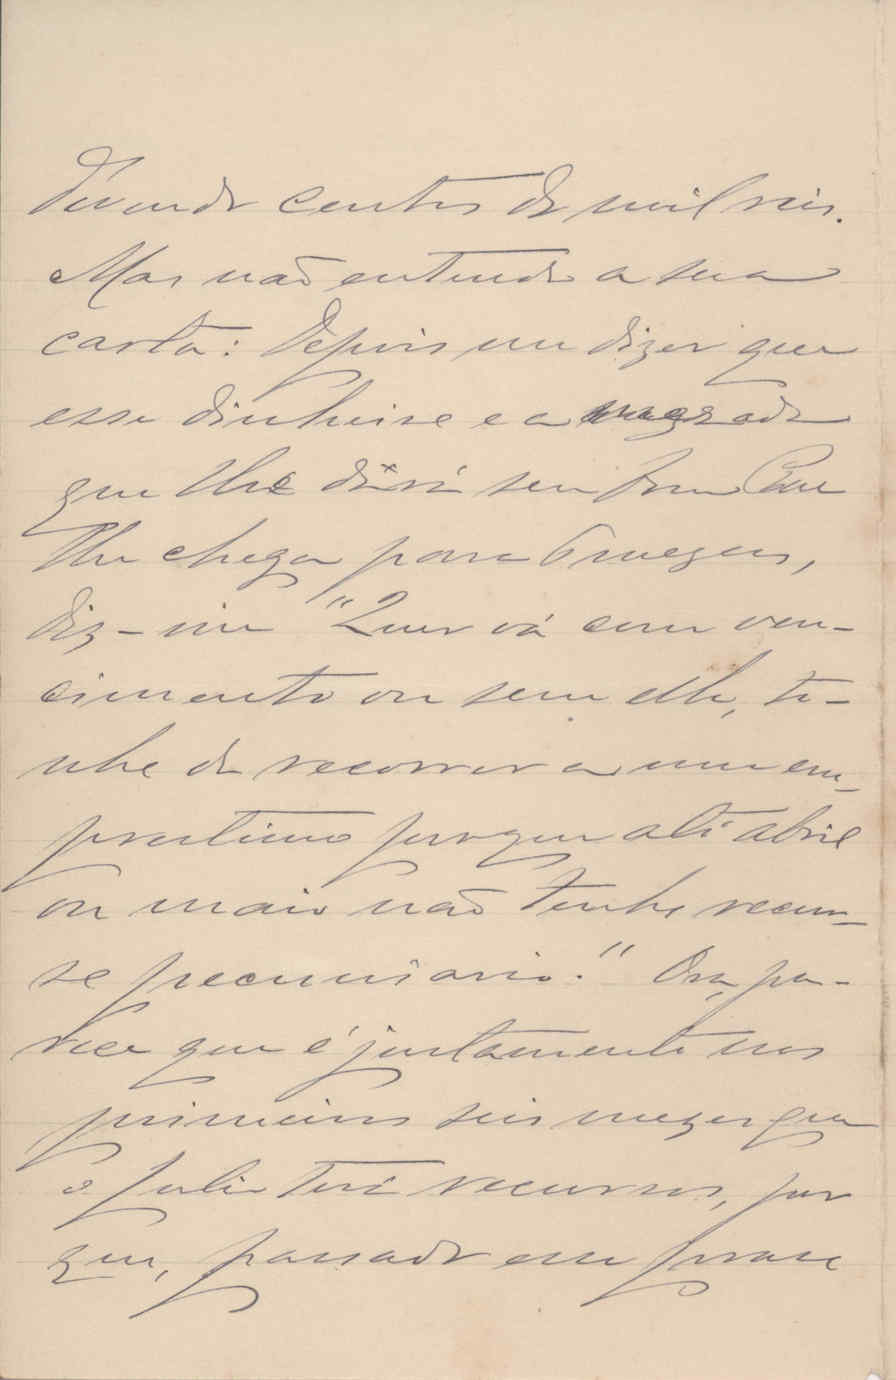 duzendo centos de mil reis.
Mas não entendo a sua
carta: Depois me dizer que
esse dinheiro e a mezada
que lhe dará seu bom Pae
lhe chega para 6 mezes,
diz-me "Quer vá com ven-
cimento ou sem elle, te-
nho de recorrer a um em-
prestimo porque até abril
ou maio não tenho recur-
so pecuniario." Ora, pa-
rece que é justamente nos
primeiros seis mezes que
o Julio terá recursos, por
que, passado esse praso